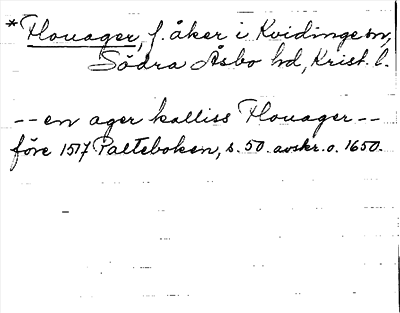 *Flouager, f. åker i Kvidinge sn,
Södra Åsbo hd, Krist. l.
-- en ager kalliss Flouager --
före 1517 Palteboken, s. 50. avskr. o. 1650.